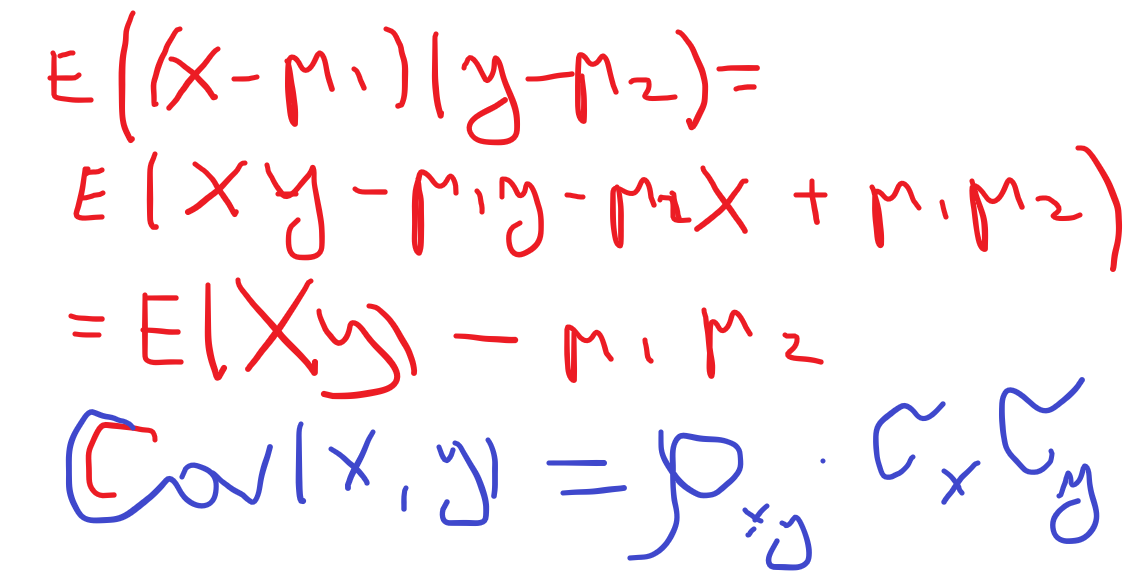 E((x-μ₁)(y-μ₂)=
E(xy-μ₁y-μ₂x+μ₁μ₂)
=E(xy)-μ₁μ₂
Cov(x,y)=ρₓ,ᵧ·σₓσᵧ